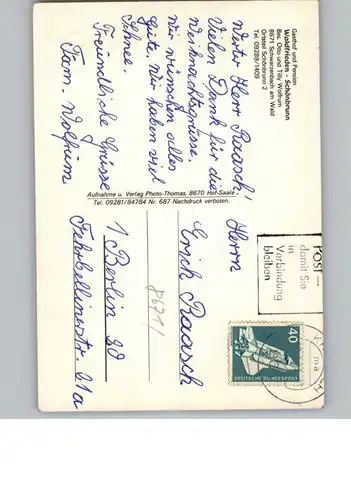 Gasthof und Pension
Waldfrieden - Schönbrunn
Bes. Otto und Tilly Wolfrum
8671 Schwarzenbach am Wald
Ortsteil Schönbrunn 2
Tel. 09289/1409
Werter Herr Raasch!
Vielen Dank für die
Weihnachtsgrüsse.
Wir wünschen alles
Gute. Wir haben viel
Schnee.
Freundliche Grüsse
Fam. Wolfrum
Aufnahme u. Verlag Photo-Thomas, 8670 Hof-Saale
Tel. 09281/84784 Nr. 687 Nachdruck verboten.
POST –
damit Sie
in
Verbindung
bleiben
40
DEUTSCHE BUNDESPOST
Herrn
Erich Raasch
8671/
1 Berlin 30
Fehrbellinerstr. 21a